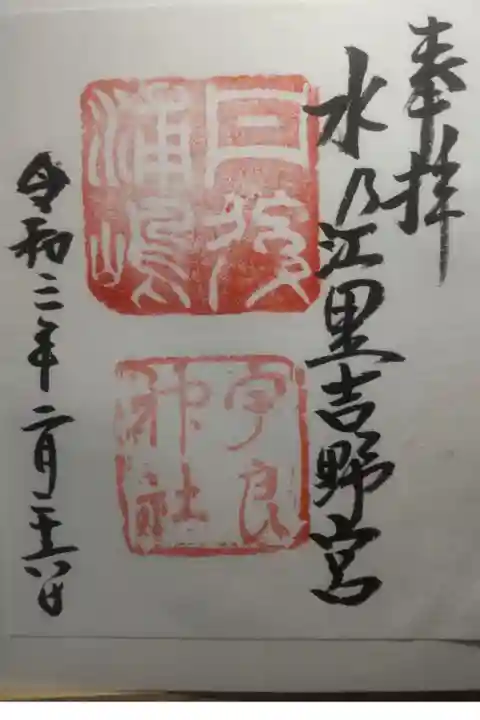 奉拝
水乃江里吉野宮
丹後
浦嶋
宇良
神社
令和二年二月二十八日